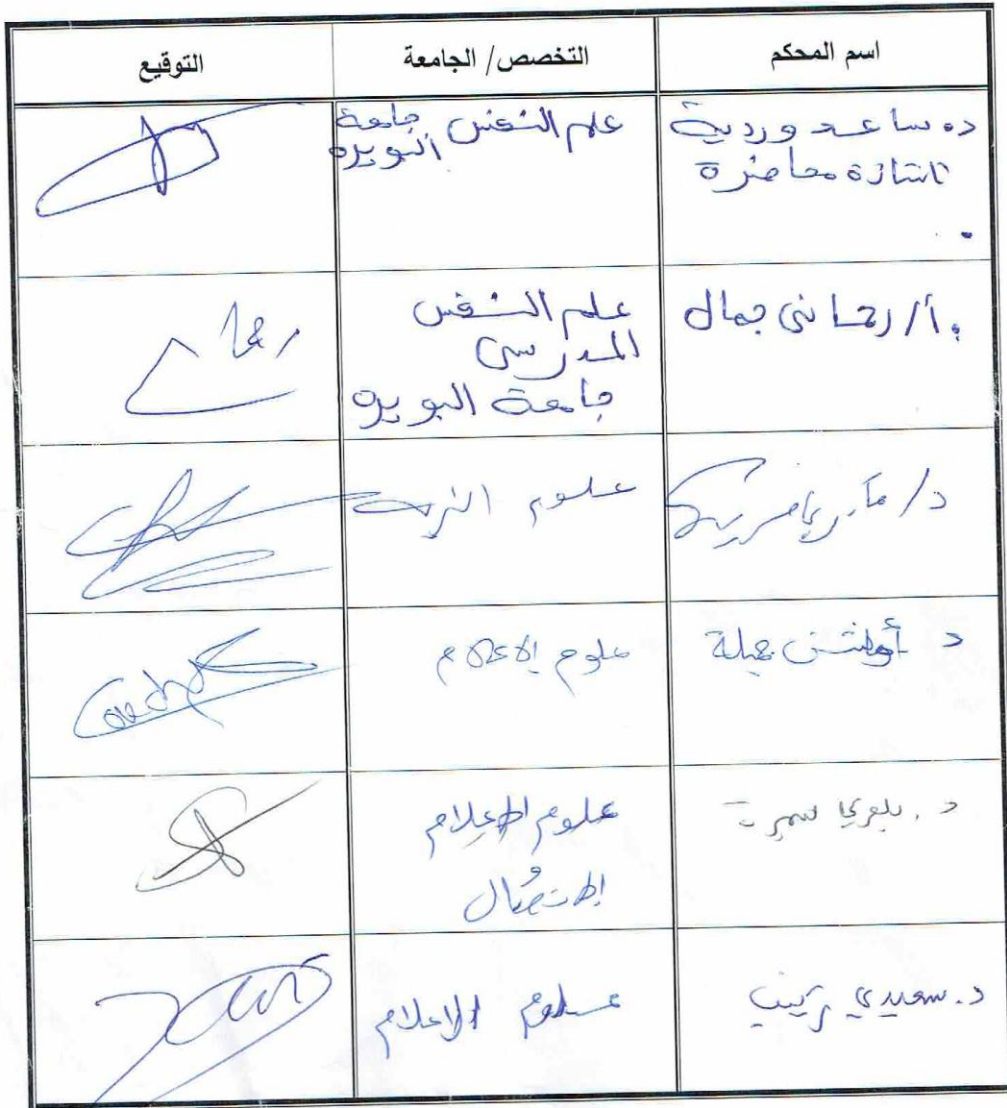 اسم المحكم
التخصص/ الجامعة
التوقيع
د. ساعد وردية
استاذة محاضرة
علم النفس جامعة
البويرة
أ/ رحماني جمال
علم النفس
المدرسي
جامعة البويرة
د/
علوم التربية
د
علوم الاعلام
د. سميرة
علوم الإعلام
و
الاتصال
د. سعيدي زينب
علوم الاعلام